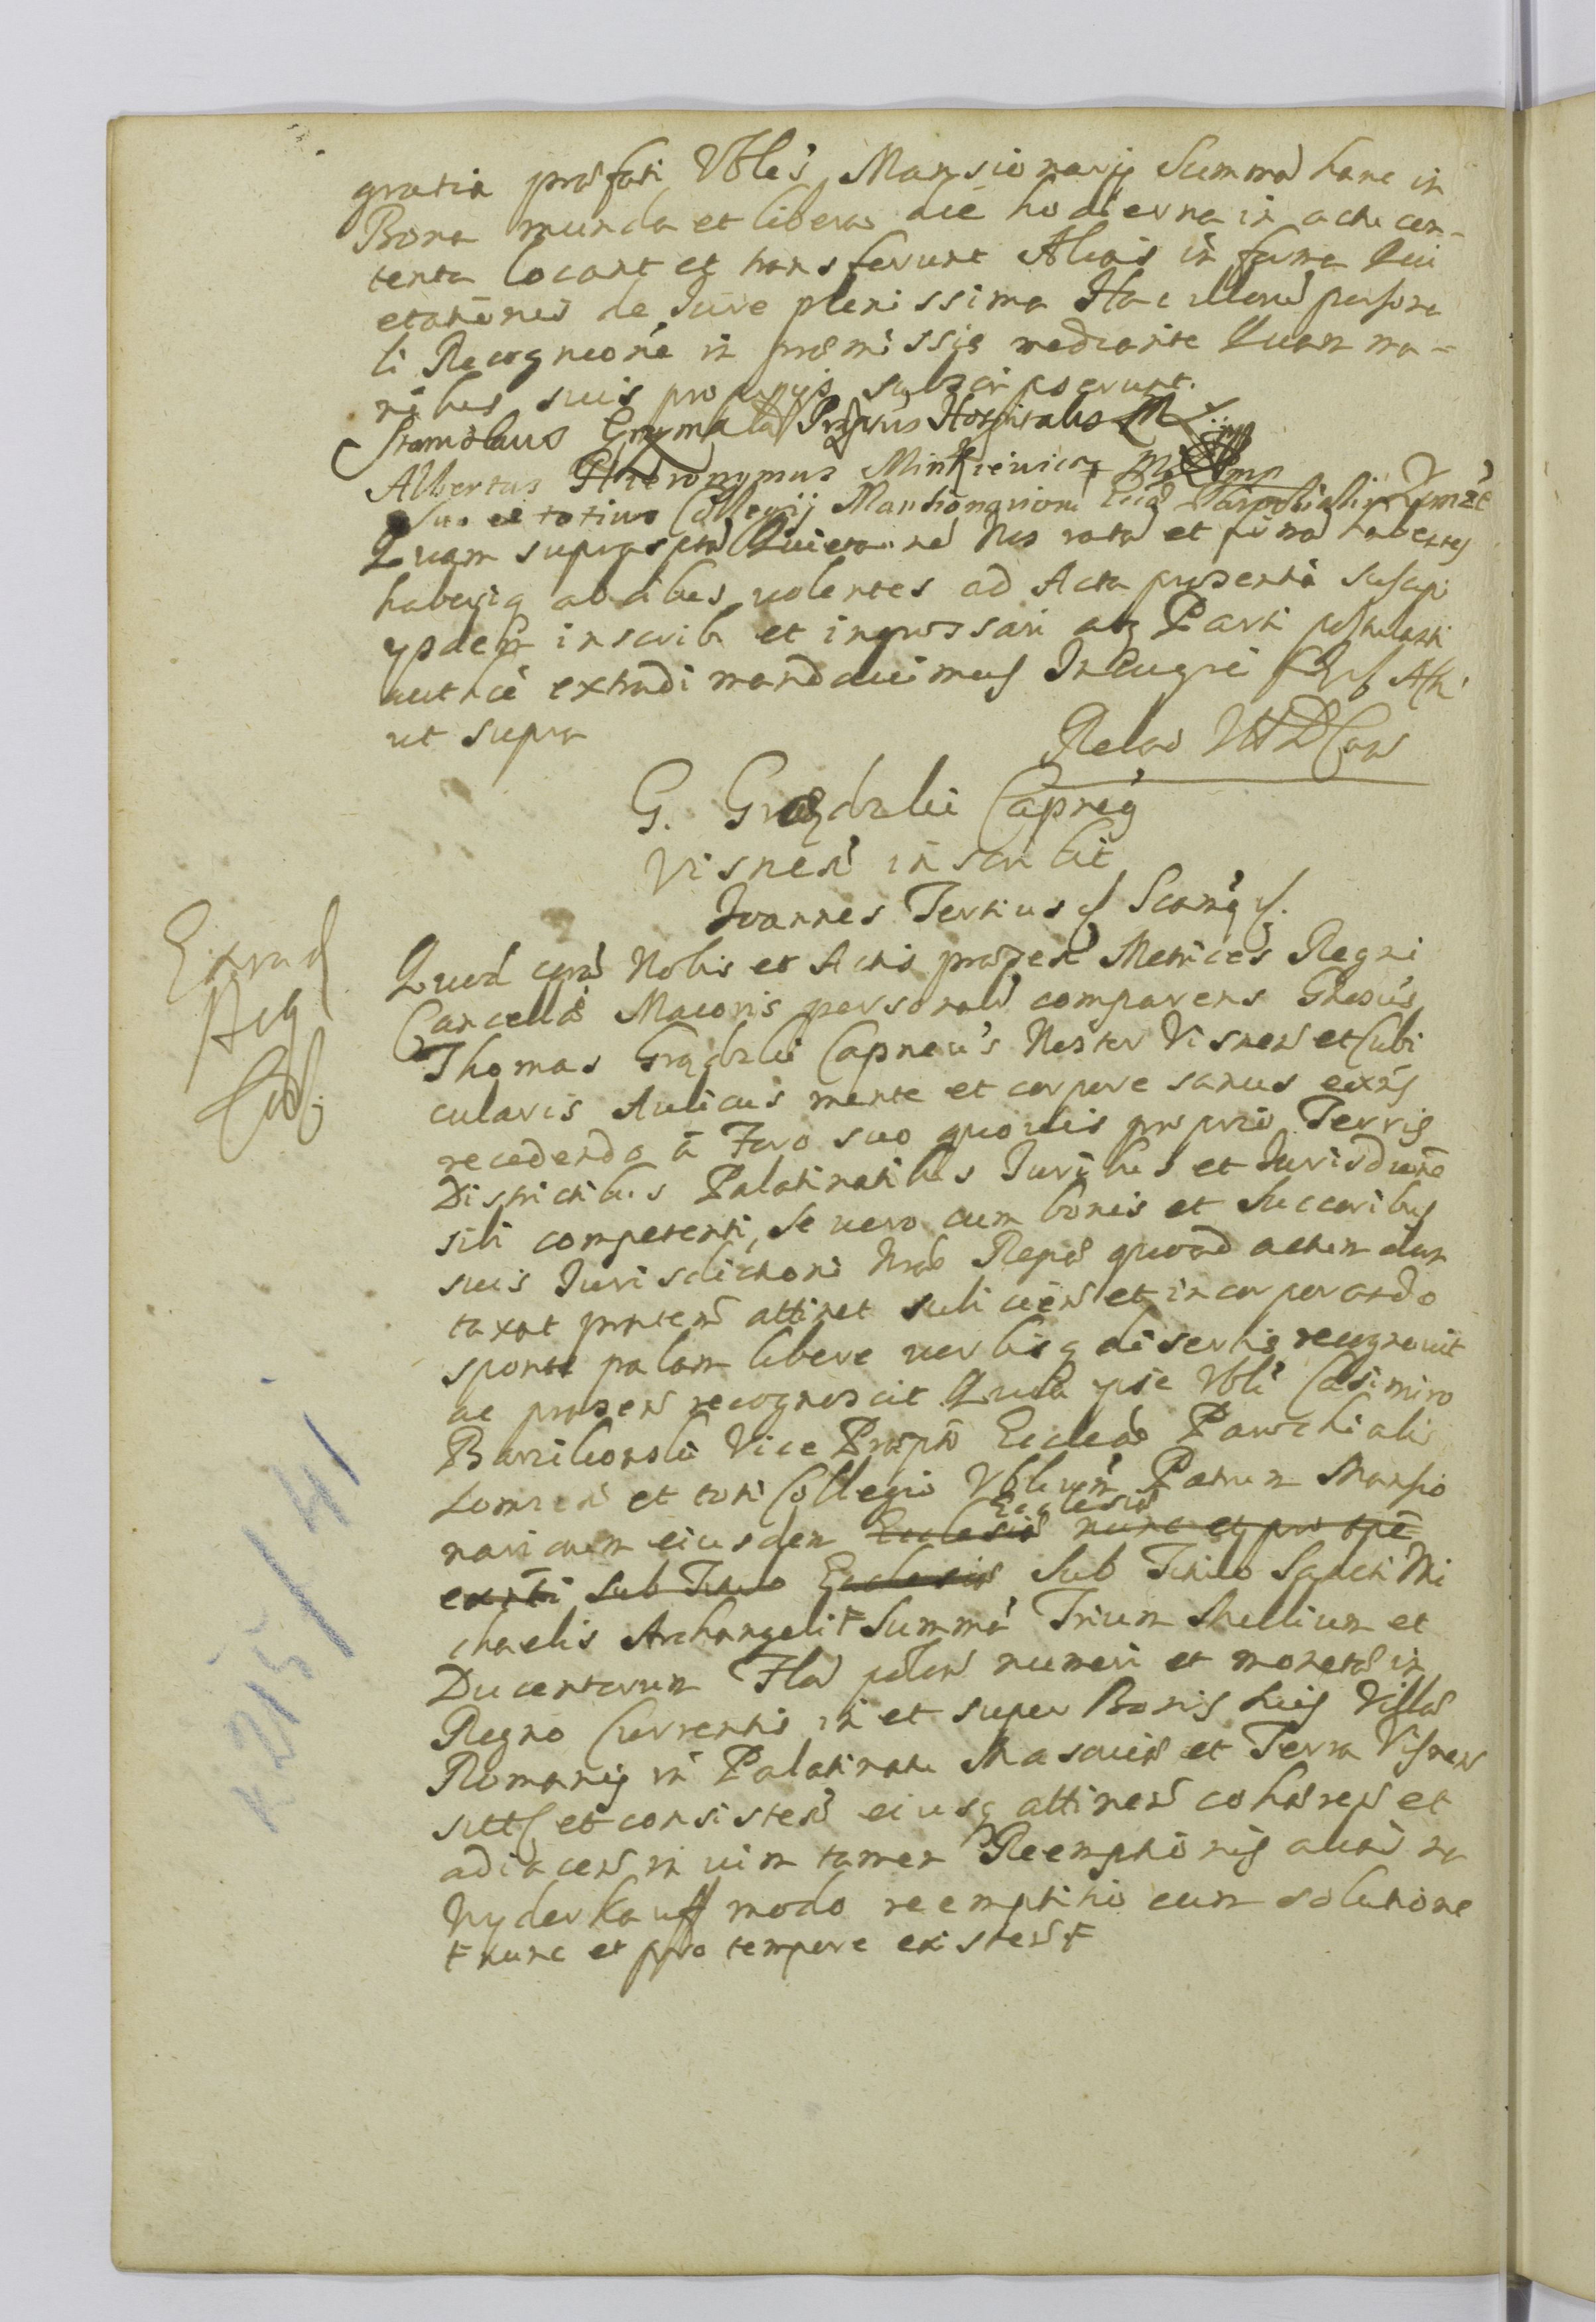 gratia praefati Vbles Mansionarij Summa hanc in
Bona munda et libera die hodierna in acta con-
tenta locant et transferunt Alias in forma Qui
etationis de Jure plenissima Hac illorum persona
li Recognēōne in praemissis mediante Quam ma-
nibus suis proprijs subscripserunt.
Stanislaus Grzymała Praeptus Hospitalis
Albertus Hieronymus Minkiewicz mp
Suo et totius Collegij Mansionariorum Lomze
Quam suprasptā Quietatnē Nos ratā et firmā habentes
haberiq ab oībus volentes ad Acta praesentia suscipi
ypdem inscribi et ingrossari atq Parti postulanti
autē extradi mandavimus In Cuius rei
ut supra
Relaō
G. Grądzki Capneg
Visneń inscribit
Joannes Tertius Scō Sciamq
Quod corā Nobis et Actis praeseñ Metrices Regni
Cancellae Maioris personalr comparens Gnosus
Thomas Grądzki Capneus Noster Visneń et Cubi
cularis Aulicus mente et corpore sanus exns
recedendo à Foro suo quovis proprio Terris
Districtibus Palatinatibus Juribus et Jurisdnē
sibi competenti, Se vero cum bonis et Succoribus
suis Jurisdictioni Nrae Regiae quoad actum dun
taxat praesteñ attinet subijcieñ et incorporando
sponte palam libere verbisq disertis recognovit
ac praeseñ recognoscit Quia ipse Vbli Casimiro
Vice Praepto Ecclae Parochialis
Lomzeñ et toti Collegio Vbliūm Patrum Mansio
nariorum eiusdem Ecclesiae Ecclesiae nunc et pro tpē
exnti sub Titulo Ecclesiae Sub Titulo Sancti Mi
chaelis Archangeli + Summā Trium Millium et
Ducentorum Flō poloñ numeri et monetae in
Regno Currentis in et super Bonis suis Villae
Romany in Palatinatu Masoviae et Terra Visneń
sitis et consisteñ eiusq attineñ cohaereñ et
adiaceñ in vim tamen Reemptionis alias na
Wyderkauff modo reemptitio cum solutione
+ nunc et pro tempore existeñ +
Extrad
Actq
r 215/41